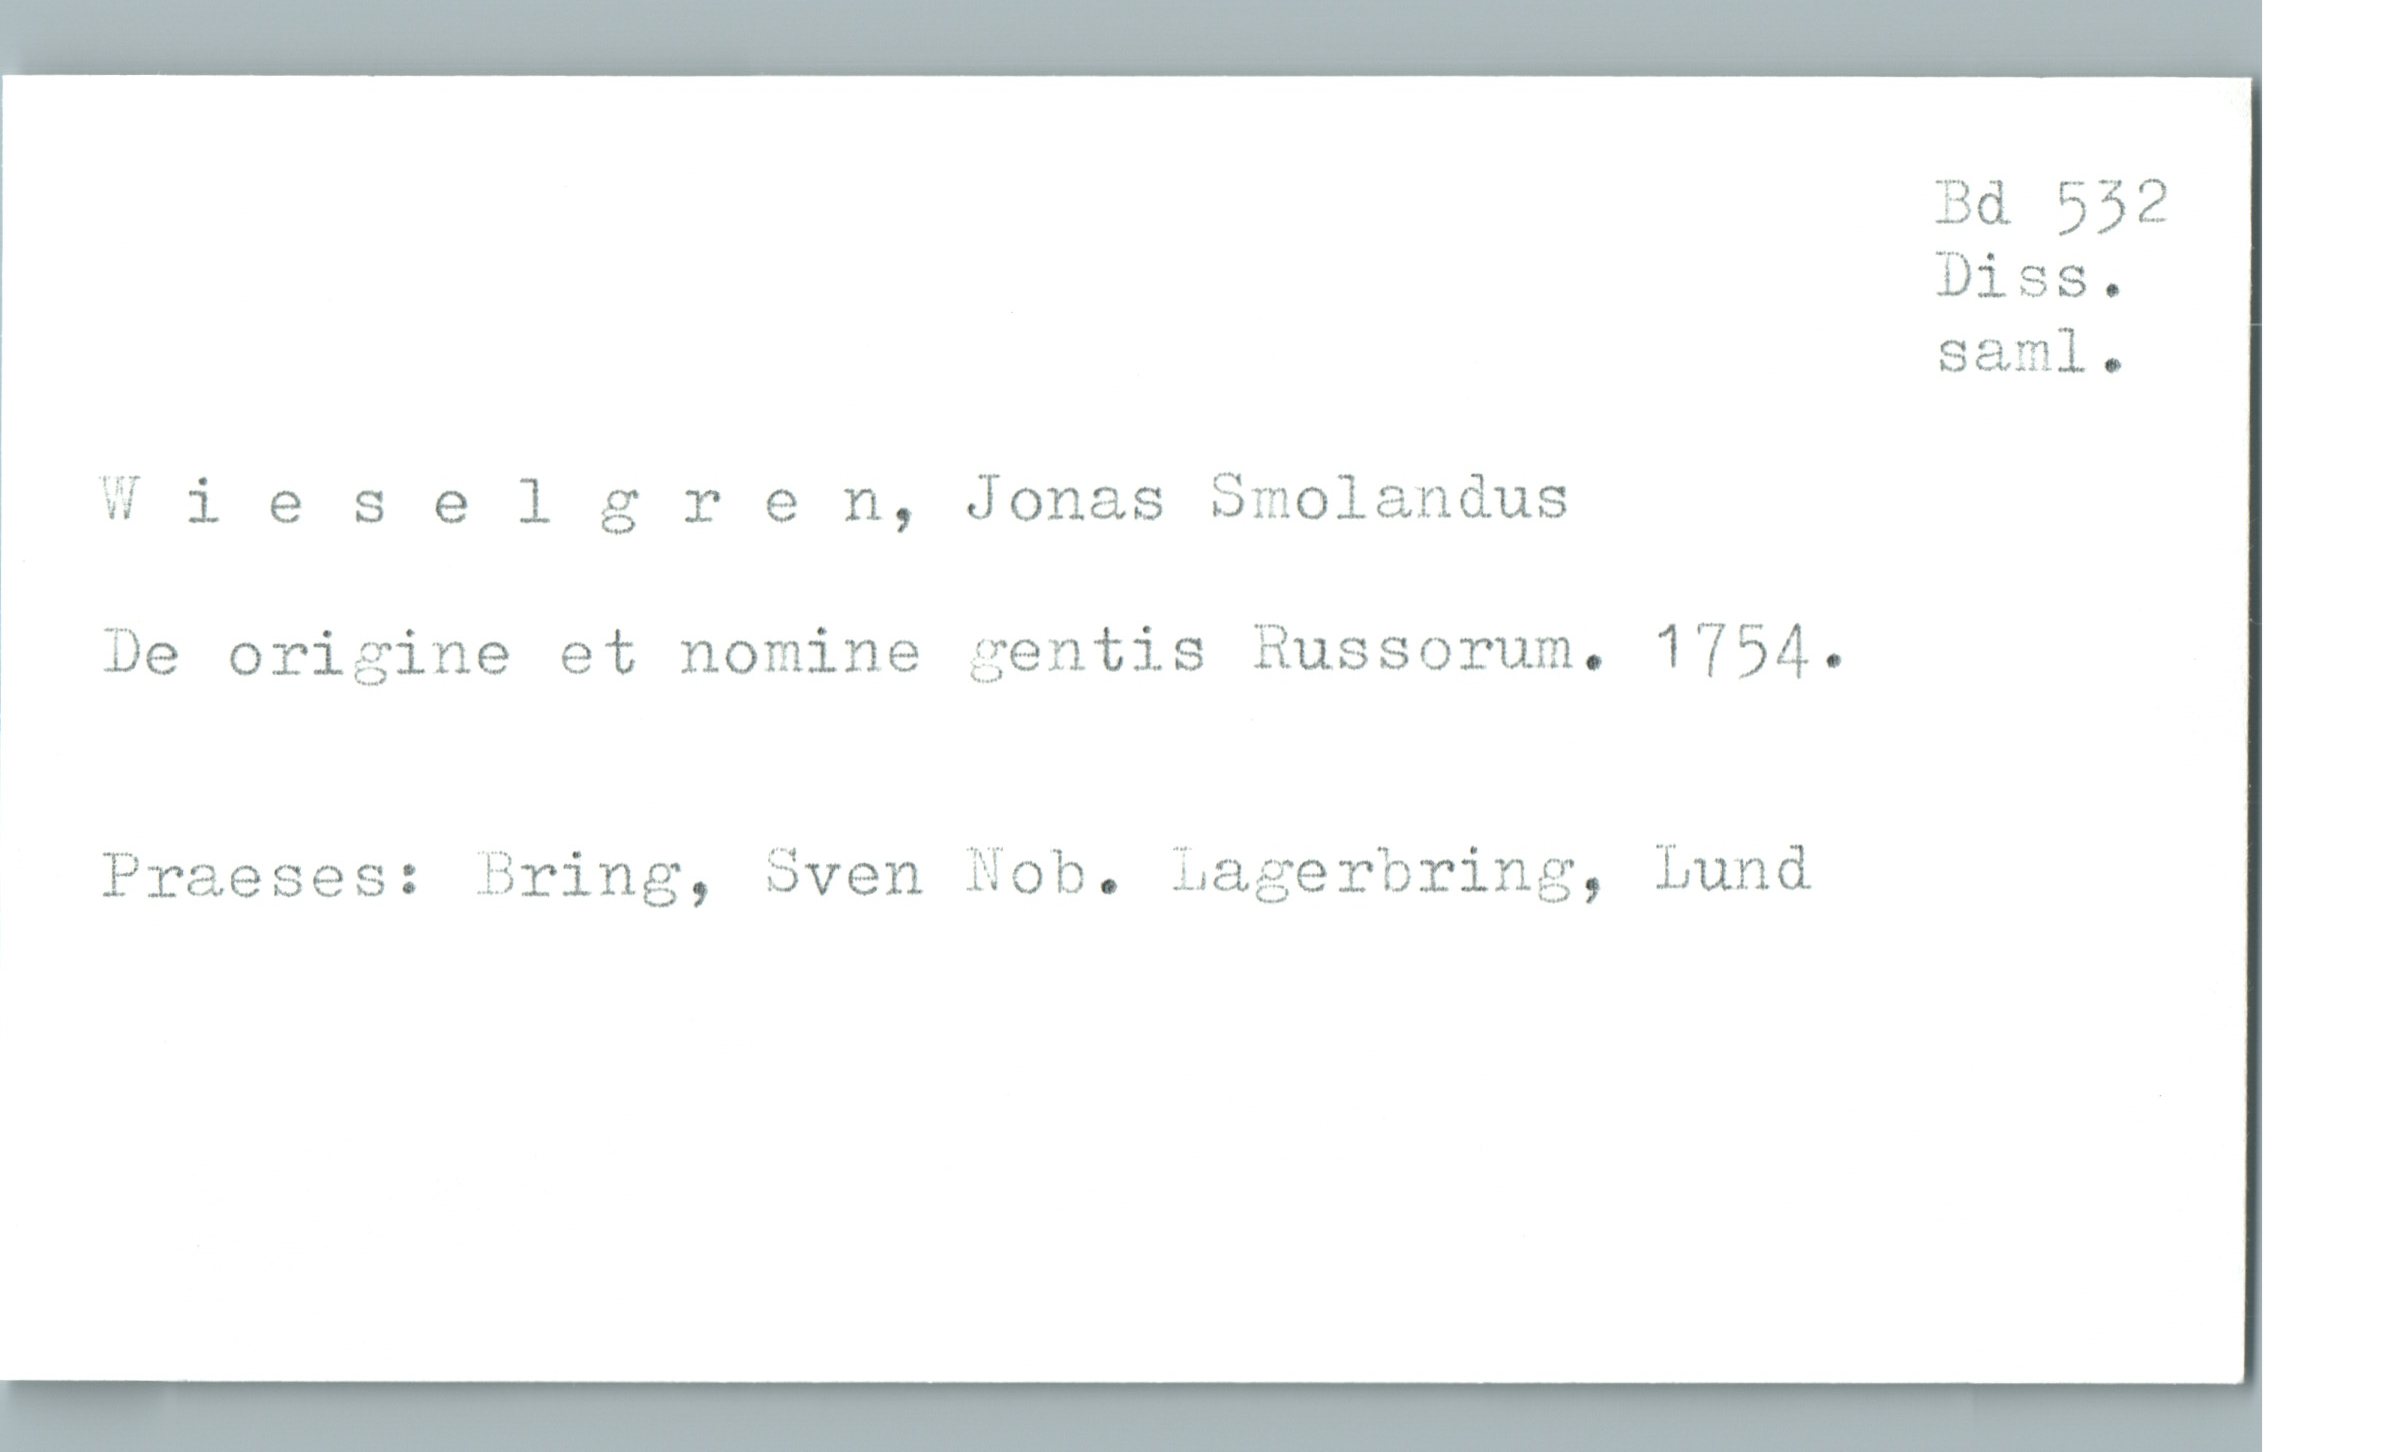 Bd 532
Diss.
saml.
W i e s e l g r e n, Jonas Smolandus
De origine et nomine gentis Russorum. 1754.
Praeses: Bring, Sven Nob. Lagerbring, Lund